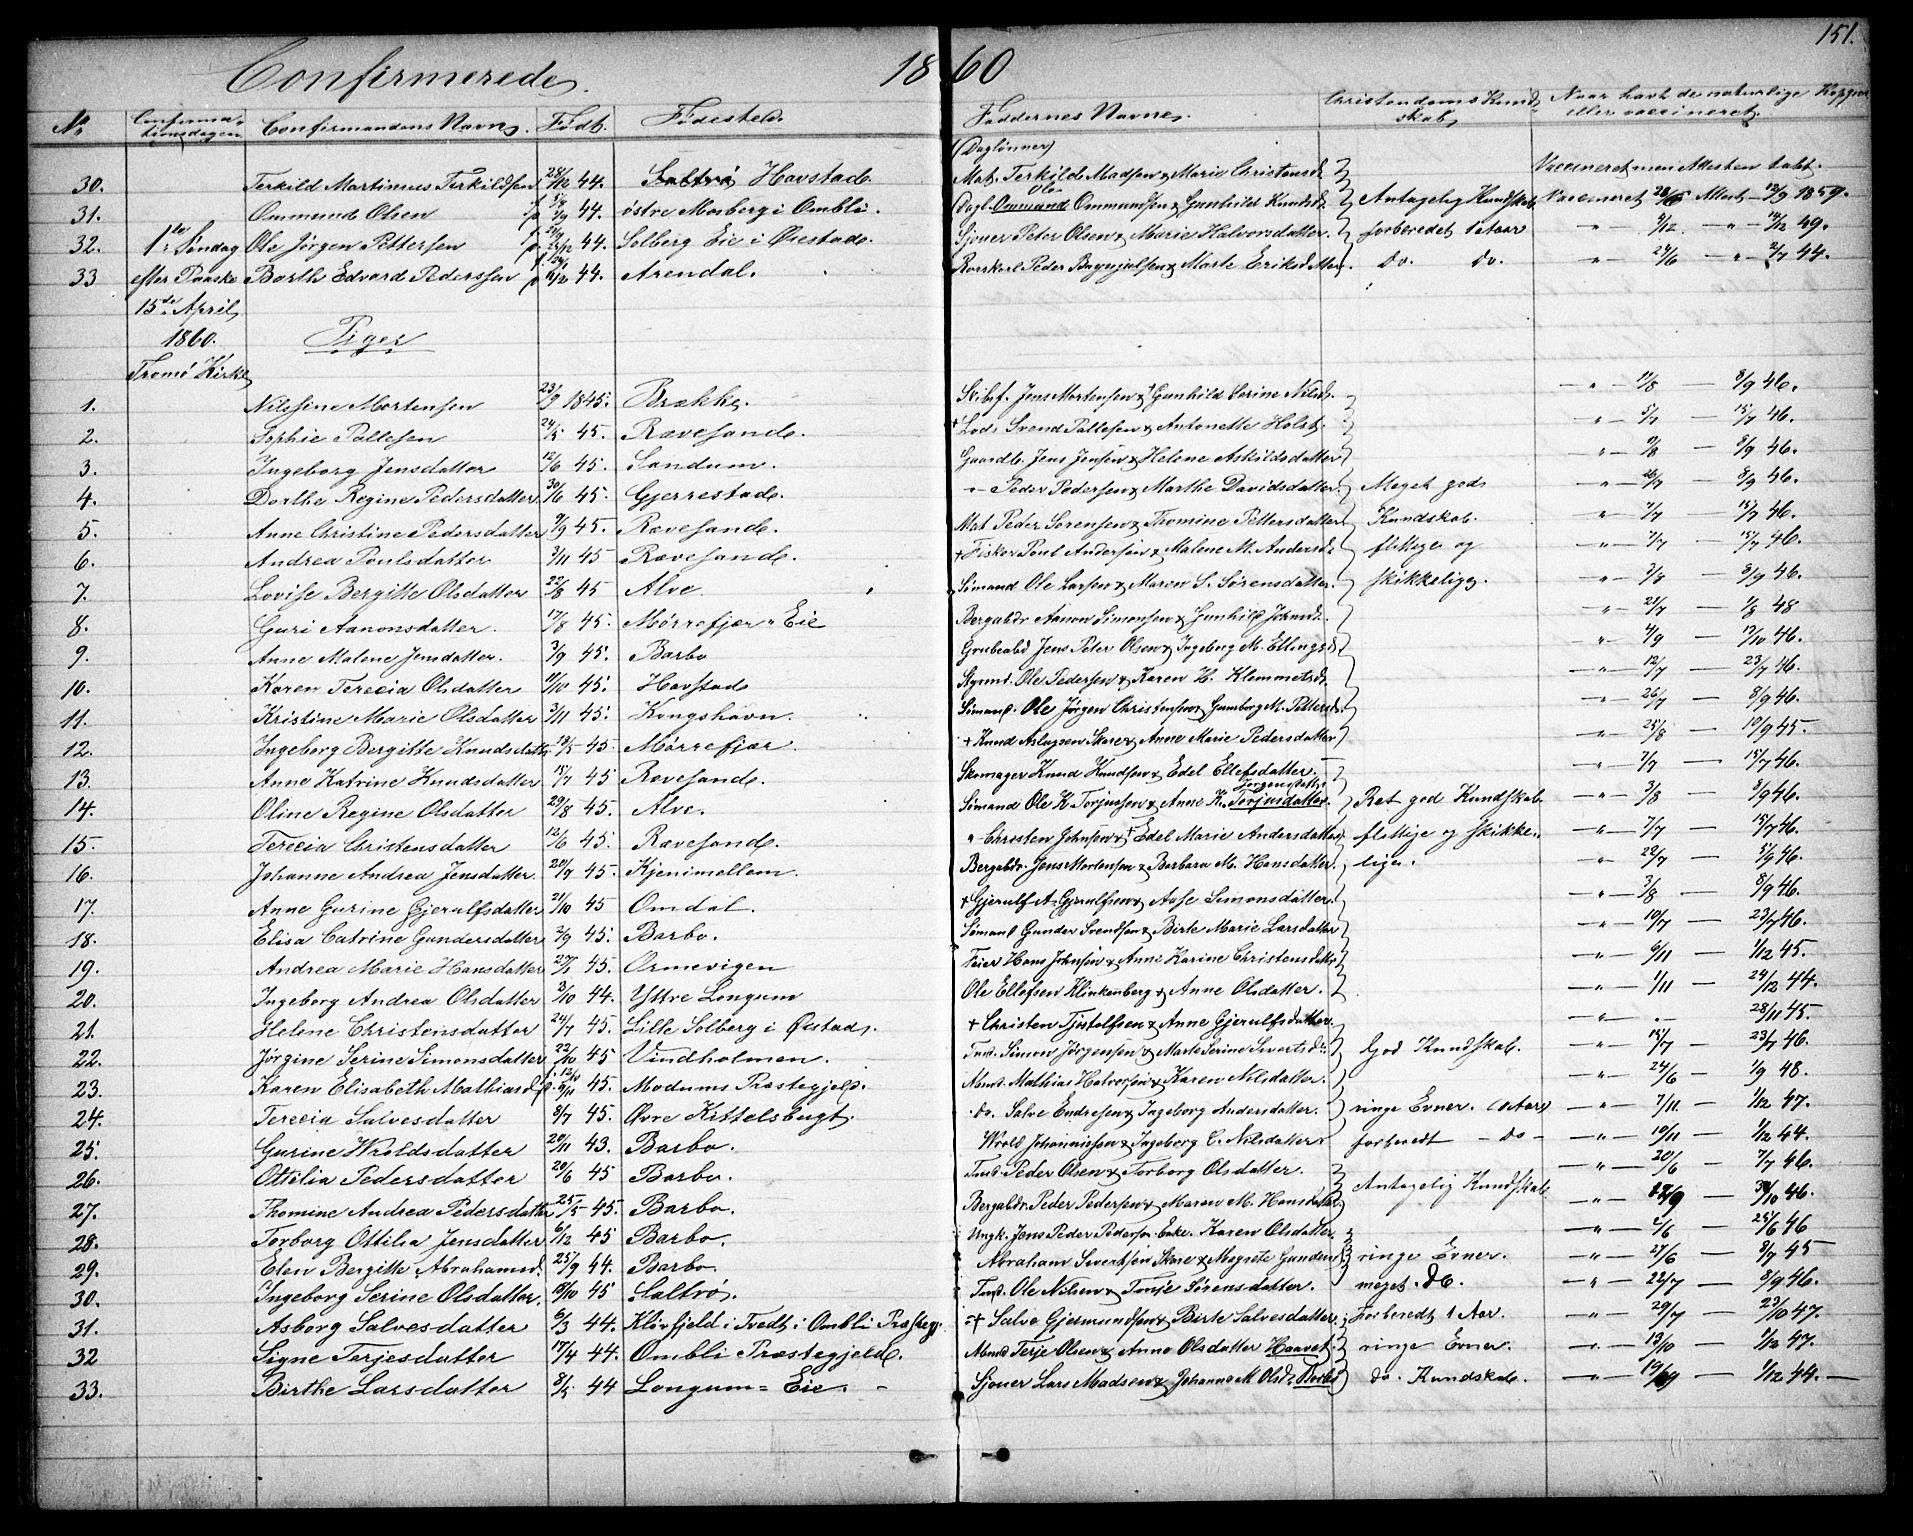 151.
Confirmerede 1860
No Confirmationsdagen Confirmandens Navn. Født. Fødested Faddernes Navne. Christendoms Kundskab Naar havt de naturlige Kopper eller vaccineret.
(Daglønner) Vaccineret men Attesten tabt.
30. Terkild Martinius Terkildsen 28/12 44. Saltrø Havstad. Mat. Terkild Madsen & Marie Christensd.
31. Ommund Olsen 44. østre Mosberg i Ombli. Dagl. Ommund Ole Ommundsen & Gunhild Knudsd. Antagelig Kundskab Vaccineret Attest 12/9 1859.
32. 1ste Søndag Ole Jørgen Pettersen 44. Solberg Eie i Øiestad. Sjouer Peter Olsen & Marie Halvorsdatter. forberedet 1 Aar " 2/12 " 14/12 49.
33 efter Paaske Barthe Edvard Pederssen 44. Arendal. Peder & Marte Eriksdatter. do. do. " 24/6 " 2/7 44.
15de April
1860. Piger
Tromø Kirke
1. Nilssine Mortensen 23/9 1845. Brække. Skibsf. Jens Mortensen & Gunhild Serine Nilsd. " 11/8 — 8/9 46.
2. Sophie Pallesen 24/5 45. Rævesand. + Lods Svend Pallesen & Antonette Holst. " 5/7 — 15/7 46.
3. Ingeborg Jensdatter 12/6 45. Sandum. Gaardb. Jens Jensen & Helene Askildsdatter " 9/8 — 8/9 46.
4. Dorthe Regine Pedersdatter 30/6 45. Gjerrestad. " Peder Pedersen & Marthe Davidsdatter. Meget god " 26/7 — 8/9 46.
5. Anne Christine Pedersdatter 9/9 45. Rævesand. Mat Peder Sørensen & Thomine Pettersdatter Kundskab. " 7/7 — 15/7 46.
6. Andrea Poulsdatter 3/11 45 Rævesand. + Fisker Poul Andersen & Malene M. Andersd. flittige og " 7/7 — 15/7 46.
7. Lovise Bergitte Olsdatter 22/8 45 Alve. Sømand Ole Larsen & Maren S. Sørensdatter. skikkelige. " 3/8 — 8/9 46.
8. Guri Aanonsdatter. 17/8 45. Mørrefjær Eie Bergabdr Aanon Simonsen & Gunhild Johnsd. " 21/7 — 1/8 48
9. Anne Malene Jensdatter. 3/9 45. Barbo Grubeabd Jens Peter Olsen & Ingeborg M. Ellingsd. " 4/9 — 17/10 46.
10. Karen Terecia Olsdatter 11/10 45. Havstad Styrmd. Ole Pedersen & Karen H. Klemmetsd. " 12/7 — 23/7 46.
11. Kristine Marie Olsdatter 3/11 45. Kongshavn. Sømand. Ole Jørgen Christensen & Gunborg M. Pettersd. " 26/7 — 8/9 46.
12. Ingeborg Bergitte Knudsdatter 19/5 45. Mørrefjær. + Knud Aslagsen Skare & Anne Marie Pedersdatter " 25/8 — 10/9 45.
13. Anne Katrine Knudsdatter 15/7 45 Rævesand. Skomager Knud Knudsen & Edel Ellefsdatter. " 7/7 — 15/7 46.
14. Oline Regine Olsdatter 29/8 45. Alve. Sømand Ole K Torjussen & Anne K. Torjusdatter. Jørgensdatter Ret god Kundskab. " 3/8 — 8/9 46.
15. Terecia Christensdatter 12/6 45. Rævesand. " Christen Johnsen & Edel Marie Andersdatter flittige og skikke- " 7/7 — 15/7 46.
16. Johanne Andrea Jensdatter 20/7 45. Kjenimellem. Bergabdr. Jens Mortensen & Barbara M. Hansdatter. lige. " 22/7 — 5/9 46.
17. Anne Gurine Gjerulfsdatter 21/10 45 Omdal. + Gjerulf A. Gjerulfsen & Aase Simonsdatter. " 3/8 — 8/9 46.
18. Elisa Catrine Gundersdatter 2/9 45. Barbo. Sømand Gunder Svendsen & Birte Marie Larsdatter " 10/7 — 23/7 46.
19. Andrea Marie Hansdatter 45. Ormevigen Feier Hans Johnsen & Anne Karine Christensdatter " 6/11 — 1/12 45.
20. Ingeborg Andrea Olsdatter 3/10 44. Yttre Longum Ole Ellefsen Klinkenberg & Anne Olsdatter. " 1/11 — 24/12 44.
21. Helene Christensdatter 24/7 45. Lille Solberg i Øiestad. + Christen Tjostolfsen & Anne Gjerulfsdatter. " — 28/11 45.
22. Jørgine Serine Simonsdatter 22/10 45 Vindholmen. Tmd. Simon Jørgensen & Marte Serine Sivertsd. God Kundskab. " 15/7 — 23/7 46.
23. Karen Elisabeth Mathiasd. f. 12/10 45. Modums Præstegjeld. Abmd. Mathias Halvorsen & Karen Nilsdatter. " 24/6 — 1/9 48.
24. Terecia Salvesdatter 8/7 45. Øvre Kittelsbugt. do. Salve Endresen & Ingeborg Andersdatter. ringe Evner. " 7/11 — 1/12 47.
25. Gurine Wroldsdatter 20/11 43. Barbo. Wrold Johannissen & Ingeborg C. Nilsdatter forberedt — do — " 19/11 — 1/12 44.
26. Ottilia Pedersdatter 20/6 45 Barbo. Tmd. Peder Olsen & Torborg Olsdatter. Antagelig Kundskab " 20/6 — 7/7 46.
27. Thomine Andrea Pedersdatter 25/5 45. Barbo. Bergabdr. Peder Pedersen & Maren M. Hansdatter. " — 46.
28. Torborg Ottilia Jensdatter 6/12 45 Barbo. Ungk. Jens Peder Pedersen. Enke. Karen Olsdatter. " 2/6 — 25/6 46
29. Elen Bergitte Abrahamsd. 25/9 44. Barbo. Abraham Sivertsen Skare & Magrete Gundersd. ringe Evner. " 27/6 — 8/7 45
30. Ingeborg Serine Olsdatter. 18/10 45 Saltrø. Tmd. Ole Nilsen & Tonje Sørensdatter. meget do. " 22/7 — 8/9 46.
31. Asborg Salvesdatter 6/3 44. Kløvfjeld i Tvedt i Ombli Præsteg. + Salve Gjermundsen & Birte Salvesdatter. Forberedt 1 Aar. " 29/7 — 23/10 47.
32 Signe Terjesdatter 17/4 44. Ombli Præstegjeld. Abmd Terje Olsen & Anne Olsdatter Haavet. ringe Evner. " 13/10 — 1/12 47.
33. Birthe Larsdatter 8/5 44 Longum Eie. Sjouer Lars Madsen & Johanne M. Olsd. Barbo do. Kundskab. " — 1/12 44.